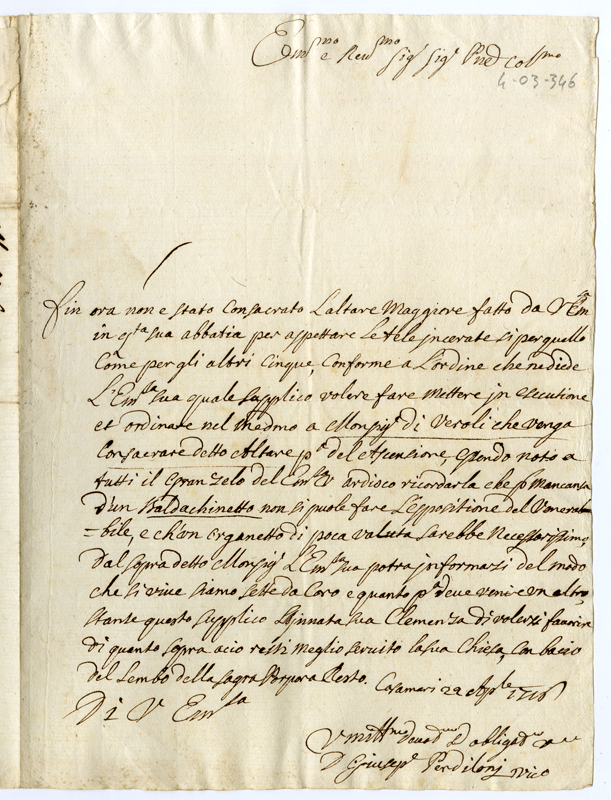 Em.mo e Reu.mo Sig.r Sig.r Pnẽ Col.mo
4-03-346
fin ora non e stato Consacrato L'altare Maggiore fatto da V Em.za
in q.ta sua abbatia per aspettare Le tele incerate si per quello
Come per gli altri Cinque, Conforme a L'ordine che ne diede
L'Em.za sua quale supplico volere fare mettere in esecutione
et ordinare nel medmo a Monsig.r di Veroli che venga
Consacrare detto Altare p.a del Asensione, essendo noto a
tutti il Gran zelo del Em.za V ardisco ricordarla che p Mancansa
d'un Baldachinetto non si puole fare L'espositione del Venera=
=bile, e ch'un organetto di poca valuta sarebbe Necessarissimo,
Dal sopra detto Monsig.r L'Em.za sua potra informarsi del modo
che si vive siamo sette da Coro e quanto p.a deue venire un altro,
stante questo supplico L'innata sua Clemenza di volersi fauorire
di quanto sopra acio resti meglio seruito la sua Chiesa, Con bacio
del Lembo della sagra Porpora Resto. Casamari 22 Aple 1716
Di V Em.za
Vmill.mo Deuot.mo et obligat.mo
D Giusep.e Perdiloni vico